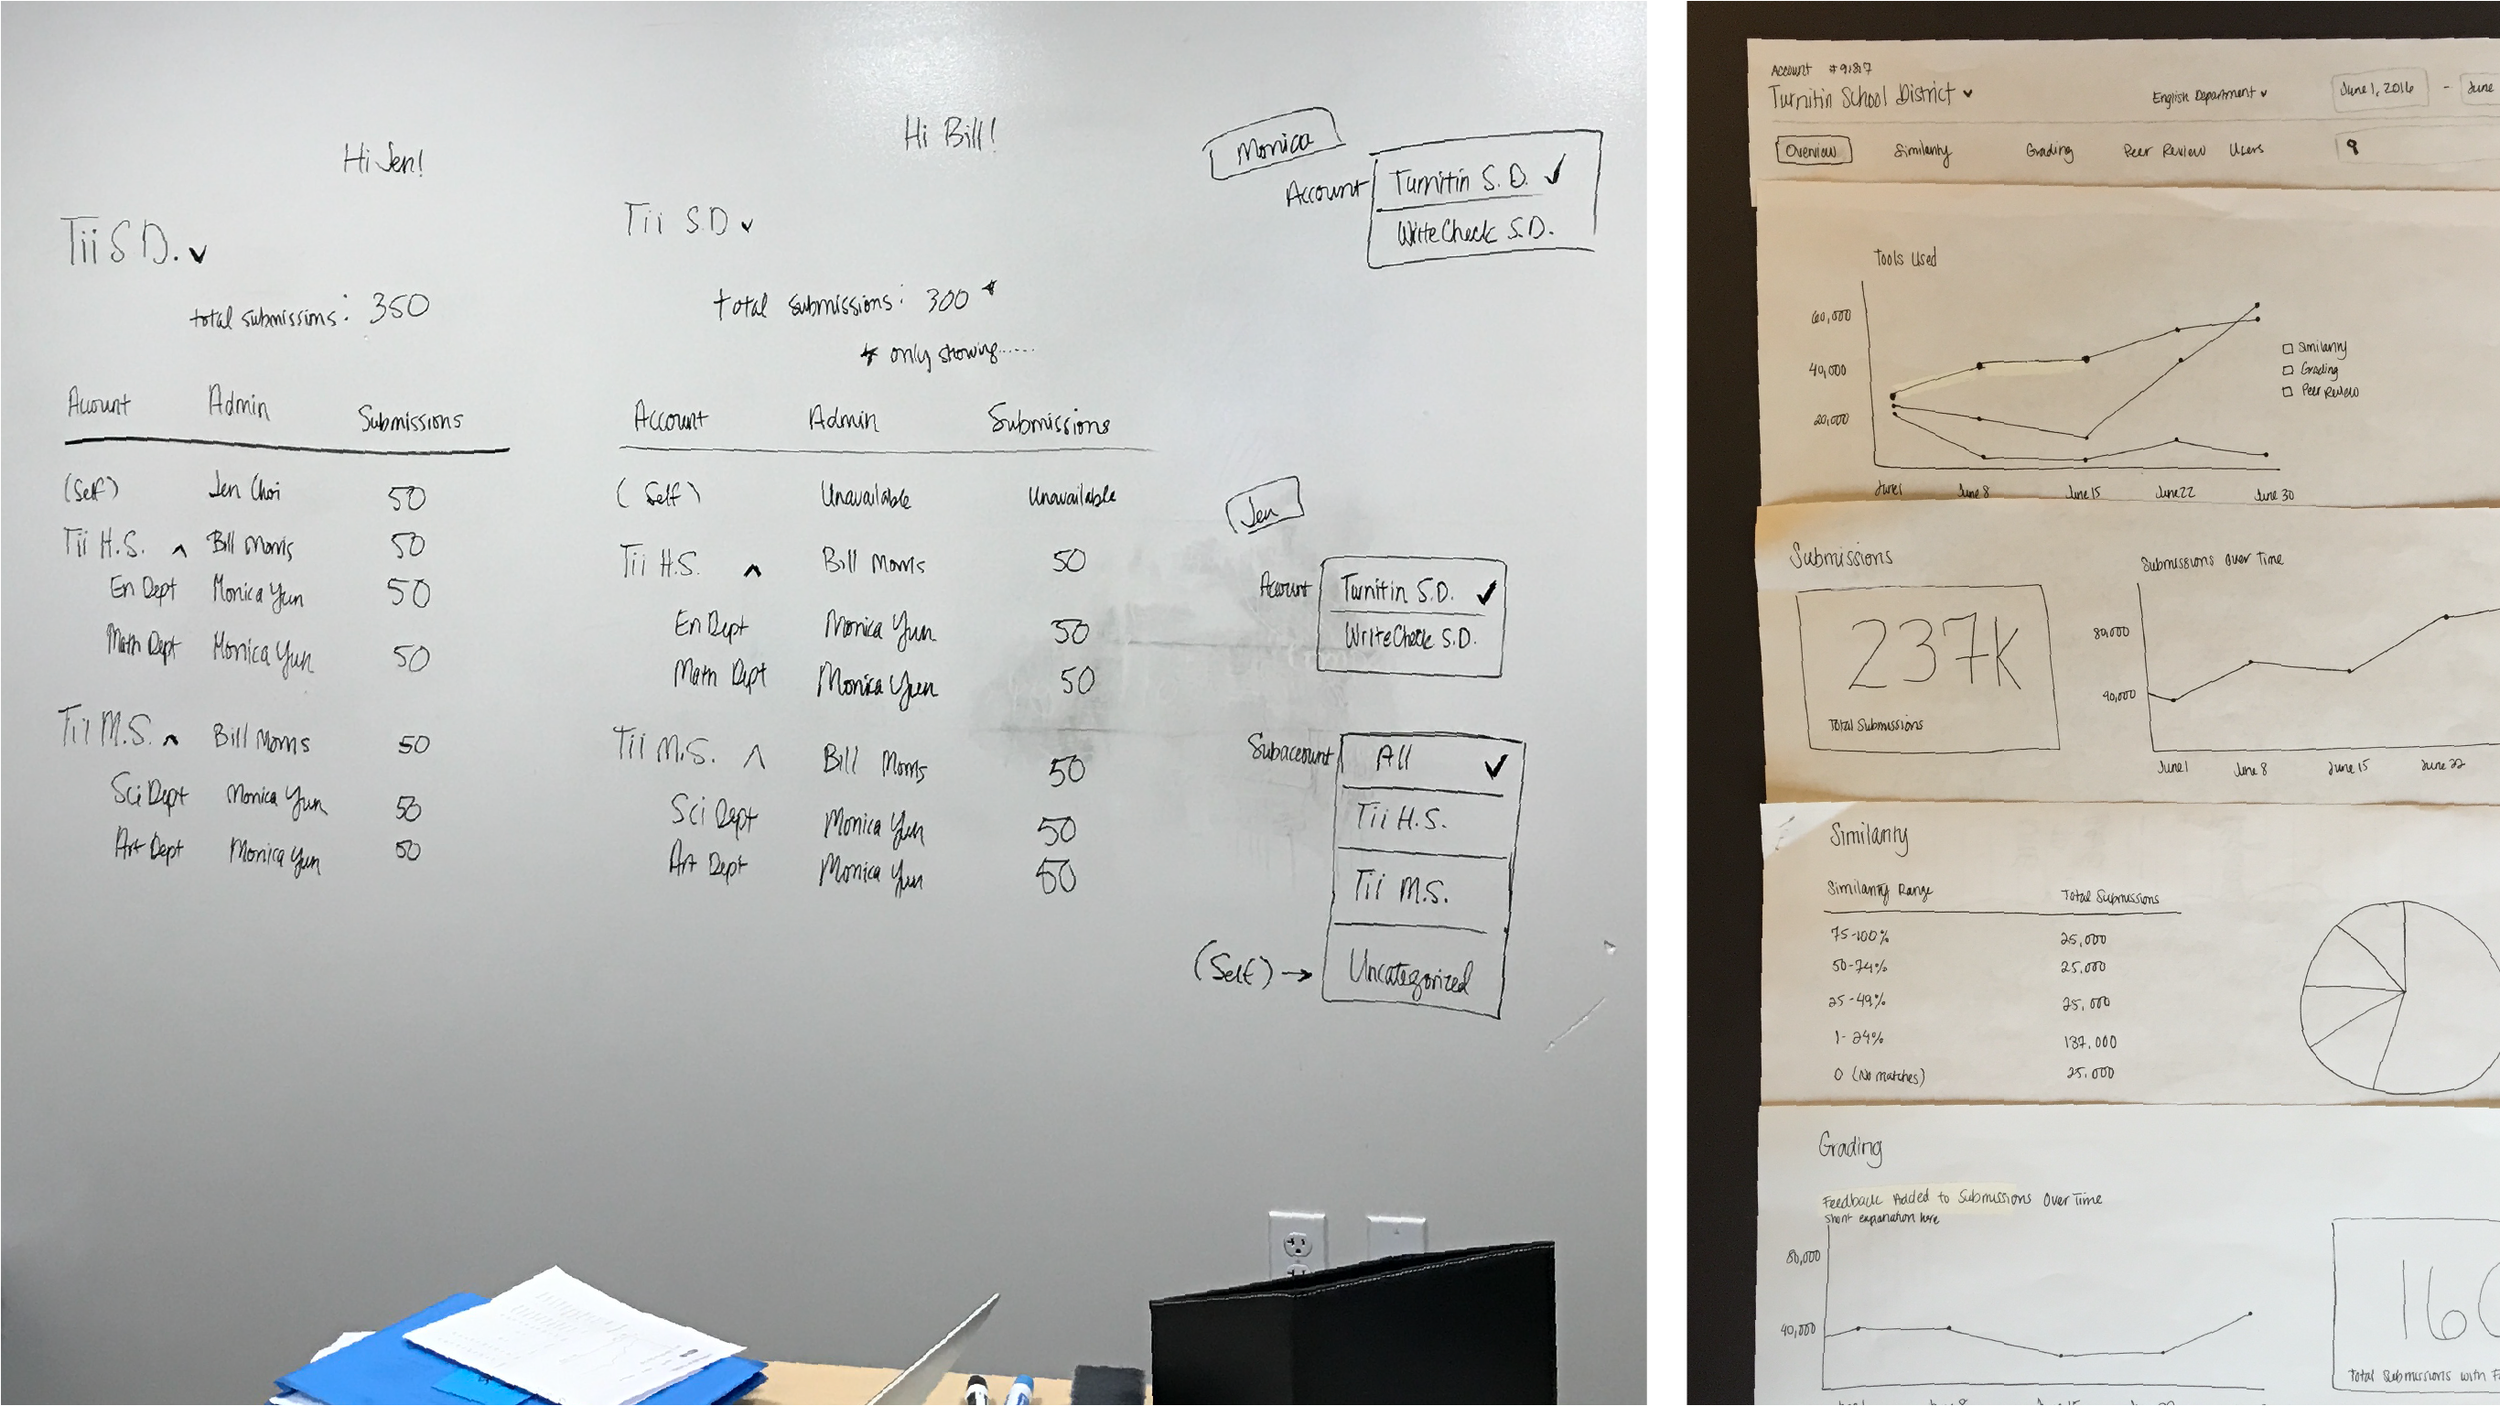 Hi Jen!
Tii S.D. v
total submissions: 350
Account Admin Submissions
(Self) Jen Choi 50
Tii H.S. ^ Bill Morris 50
En Dept Monica Yun 50
Math Dept Monica Yun 50
Tii M.S. ^ Bill Morris 50
Sci Dept Monica Yun 50
Art Dept Monica Yun 50
Hi Bill!
Tii S.D v
total submissions: 300 *
* only showing......
Account Admin Submissions
(Self) Unavailable Unavailable
Tii H.S. ^ Bill Morris 50
En Dept Monica Yun 50
Math Dept Monica Yun 50
Tii M.S. ^ Bill Morris 50
Sci Dept Monica Yun 50
Art Dept Monica Yun 50
Monica
Account Turnitin S.D. ✓
WriteCheck S.D.
Jen
Account Turnitin S.D. ✓
WriteCheck S.D.
Subaccount All ✓
Tii H.S.
Tii M.S.
(Self) → Uncategorized
Account #9187
Turnitin School District v English Department v June 1, 2016 - June
Overview Similarity Grading Peer Review Users
Tools Used
60,000
40,000
20,000
June 1 June 8 June 15 June 22 June 30
Similarity
Grading
Peer Review
Submissions
237K
Total Submissions
Submissions Over Time
80,000
40,000
June 1 June 8 June 15 June 22
Similarity
Similarity Range Total Submissions
75-100% 25,000
50-74% 25,000
25-49% 25,000
1-24% 137,000
0 (No matches) 25,000
Grading
Feedback Added to Submissions Over Time
Short explanation here
80,000
40,000
160
Total Submissions with